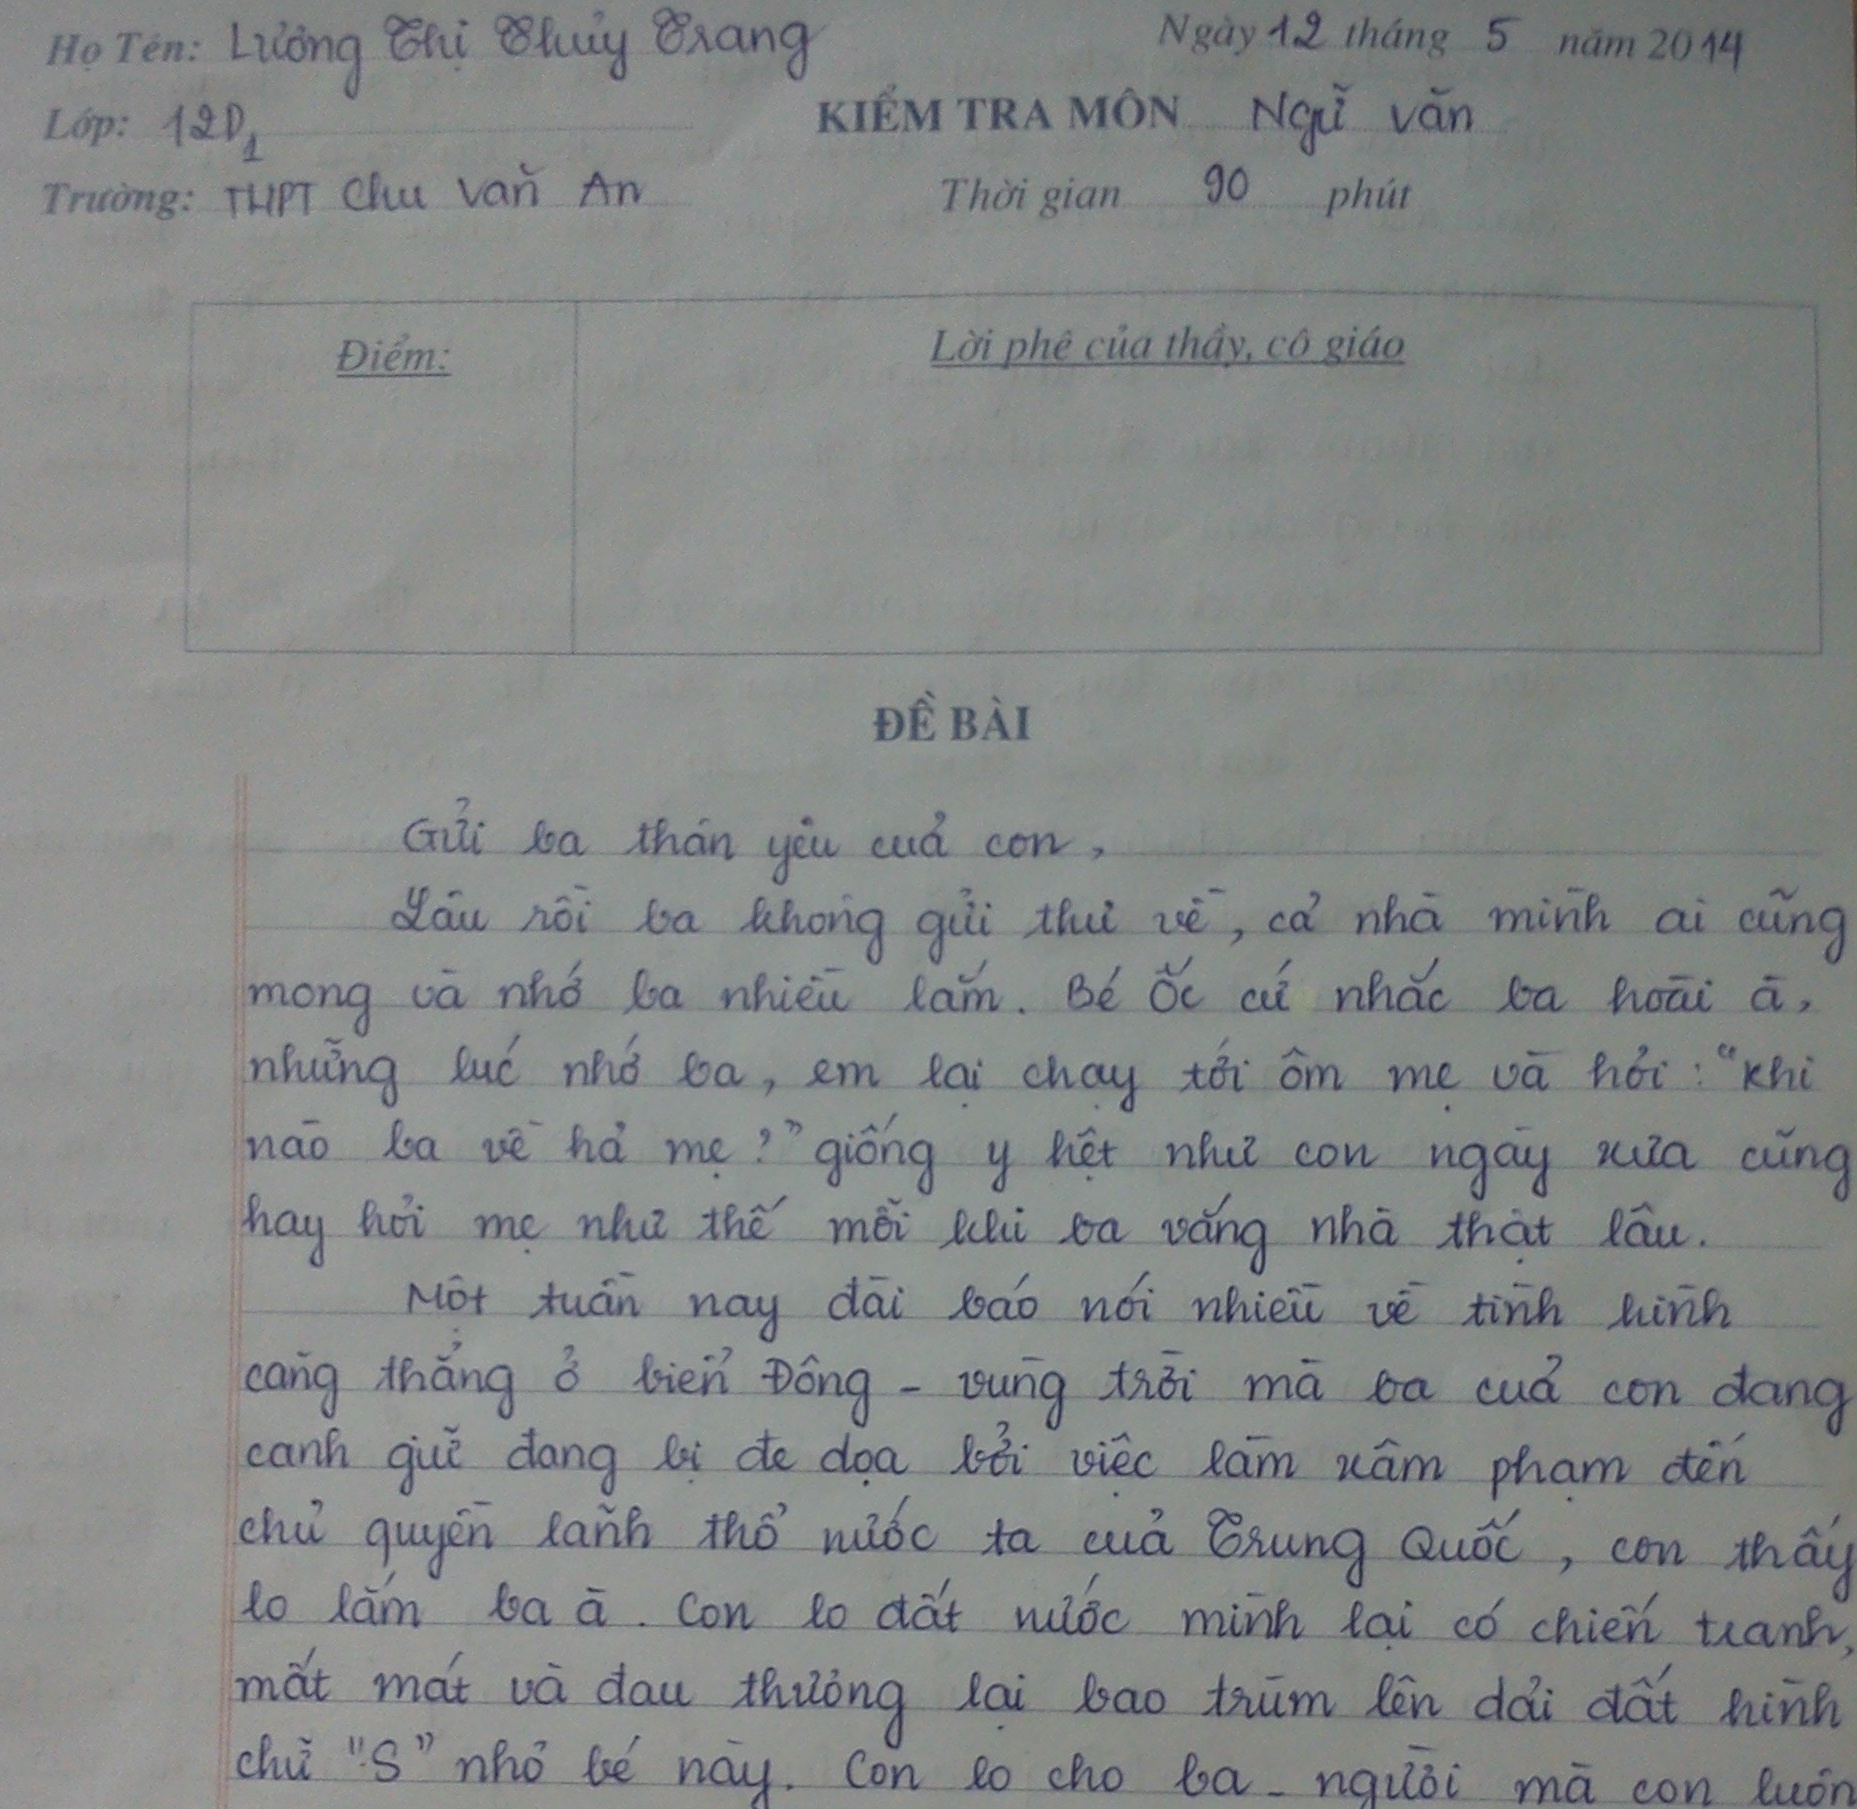 Họ Tên: Lương Thị Thuỷ Trang
Ngày 12 tháng 5 năm 2014
Lớp: 12D1
KIỂM TRA MÔN Ngữ văn
Trường: THPT Chu Văn An
Thời gian 90 phút
Điểm:
Lời phê của thầy, cô giáo
ĐỀ BÀI
Gửi ba thân yêu của con,
Lâu rồi ba không gửi thư về, cả nhà mình ai cũng
mong và nhớ ba nhiều lắm. Bé Ốc cứ nhắc ba hoài à,
những lúc nhớ ba, em lại chạy tới ôm mẹ và hỏi: "Khi
nào ba về hả mẹ?" giống y hệt như con ngày xưa cũng
hay hỏi mẹ như thế mỗi khi ba vắng nhà thật lâu.
Một tuần nay đài báo nói nhiều về tình hình
căng thẳng ở biển Đông - vùng trời mà ba của con đang
canh giữ đang bị đe dọa bởi việc làm xâm phạm đến
chủ quyền lãnh thổ nước ta của Trung Quốc, con thấy
lo lắm ba à. Con lo đất nước mình lại có chiến tranh,
mất mát và đau thương lại bao trùm lên dải đất hình
chữ "S" nhỏ bé này. Con lo cho ba - người mà con luôn